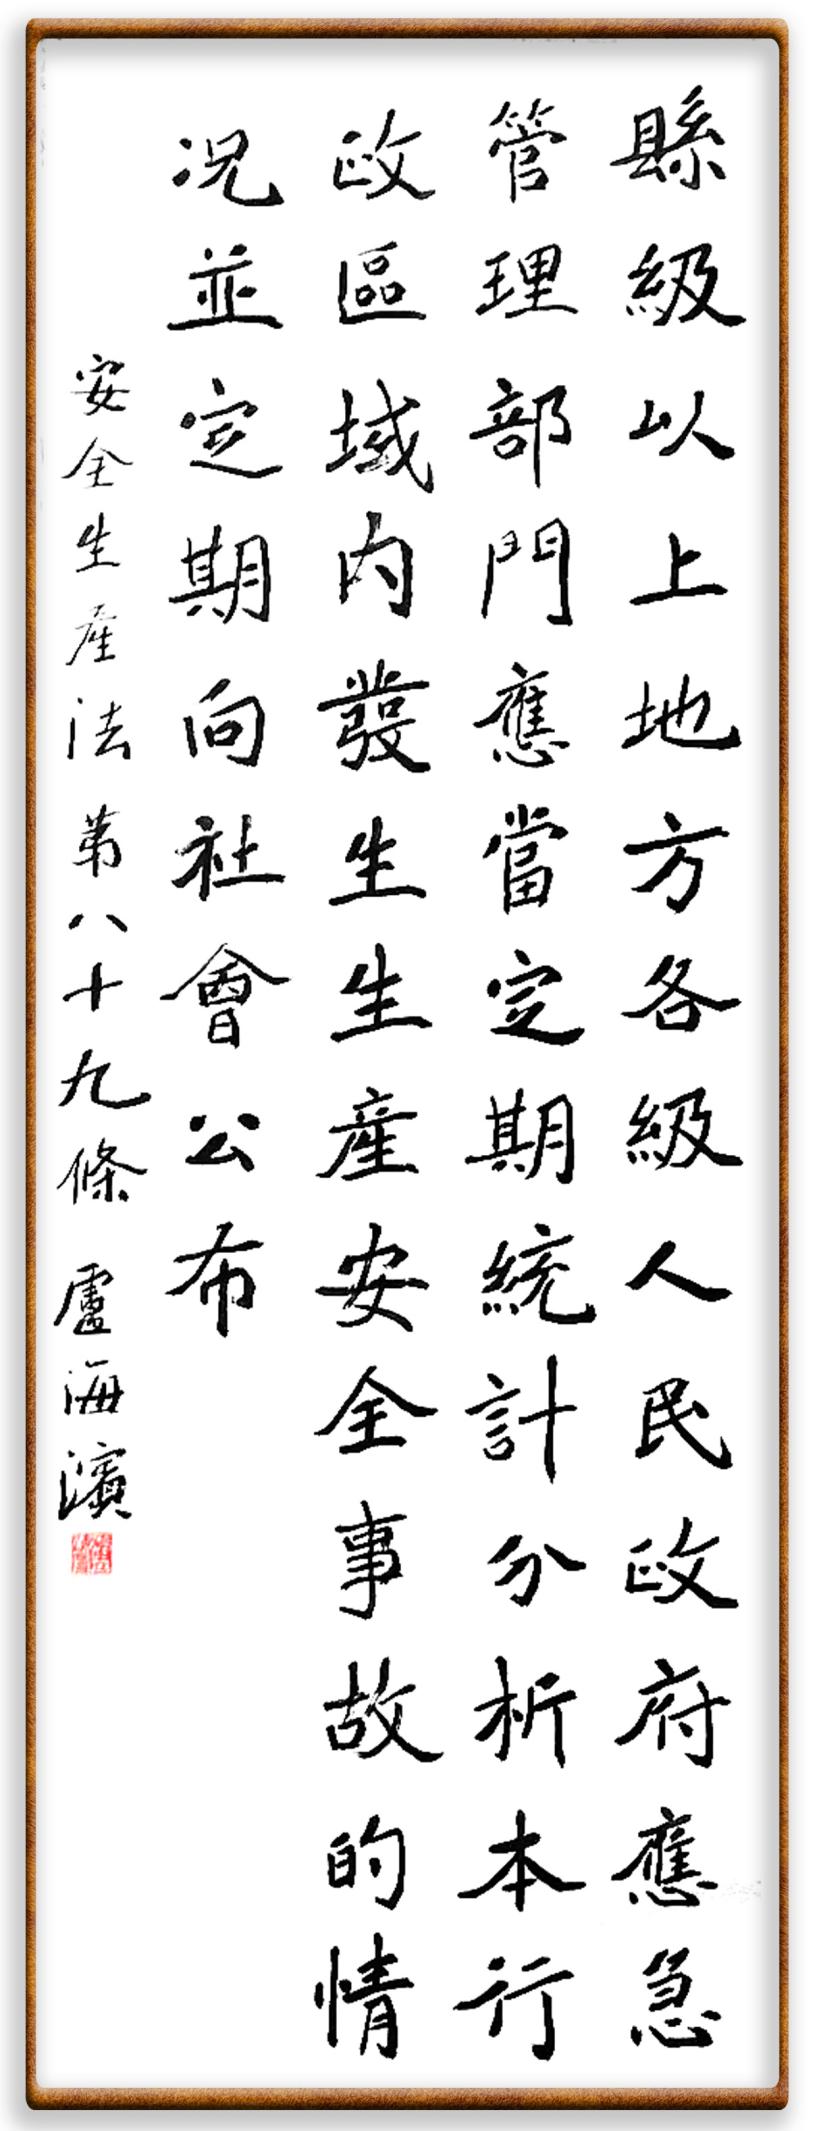 縣級以上地方各級人民政府應急
管理部門應當定期統計分析本行
政區域内發生生産安全事故的情
况並定期向社會公布
安全生産法第八十九條 盧海濱